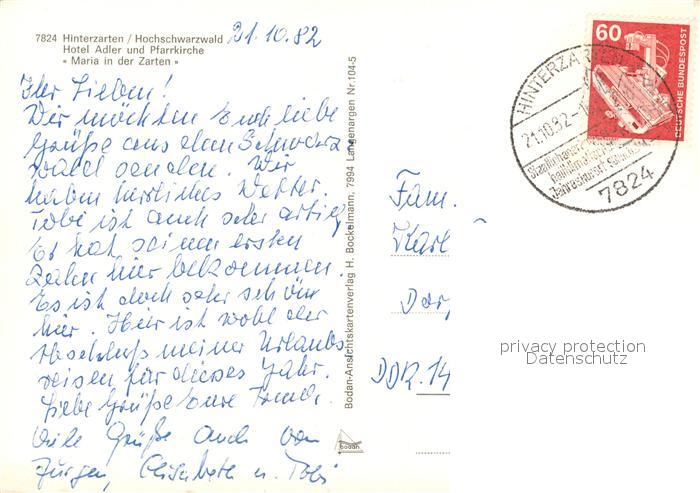 7824 Hinterzarten / Hochschwarzwald
Hotel Adler und Pfarrkirche
« Maria in der Zarten »
21.10.82
Ihr Lieben!
Wir möchten Euch liebe
Grüße aus dem Schwarz
wald senden. Wir
haben herrliches Wetter.
Tobi ist auch sehr artig
Es hat seinen ersten
Zahn hier bekommen.
Es ist doch sehr schön
hier. Hier ist wohl der
Abschluß meiner Urlaubs
reisen für dieses Jahr.
Liebe Grüße Eure
Viele Grüße auch von
Jürgen, Elisabeth u. Tobi
Bodan-Ansichtskartenverlag H. Bockelmann, 7994 Langenargen Nr. 104-5
bodan
Fam.
Karl
Dor
DDR. 14
60
DEUTSCHE BUNDESPOST
HINTERZARTEN
21.10.82-1
Staatl.
heilklimatischer
7824
privacy protection
Datenschutz